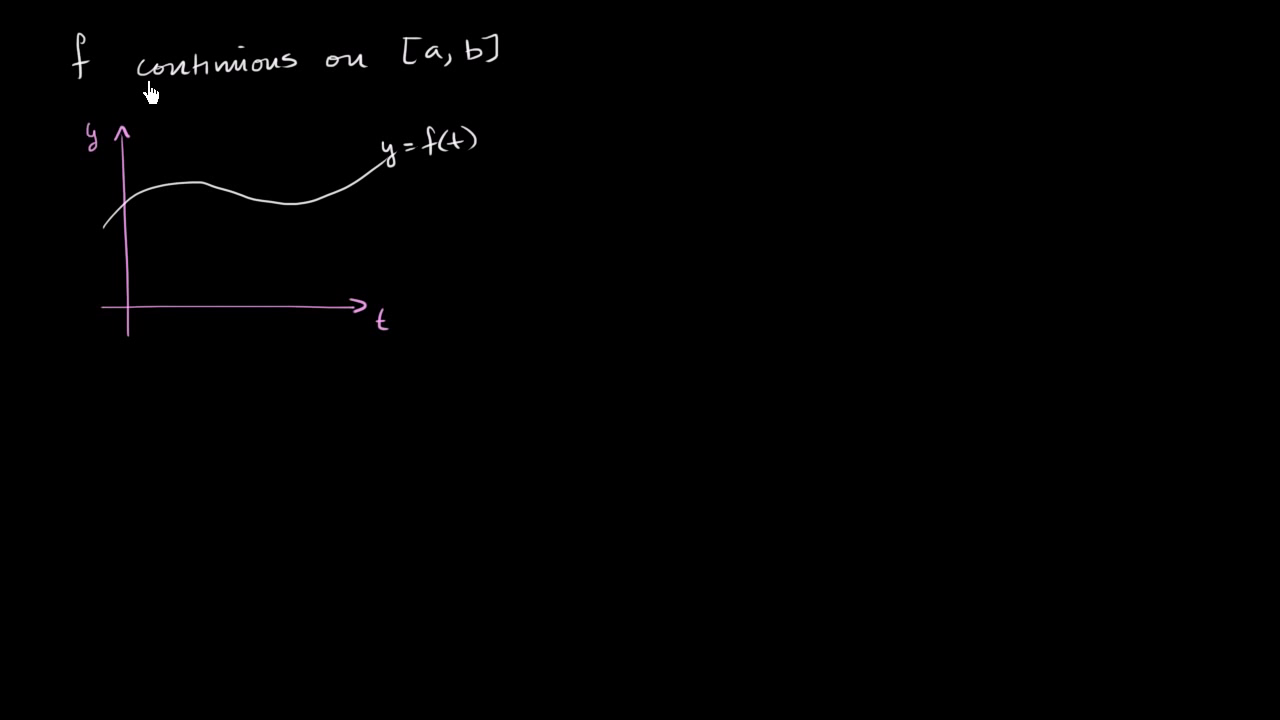 f continuous on [a, b]
y
y = f(t)
t